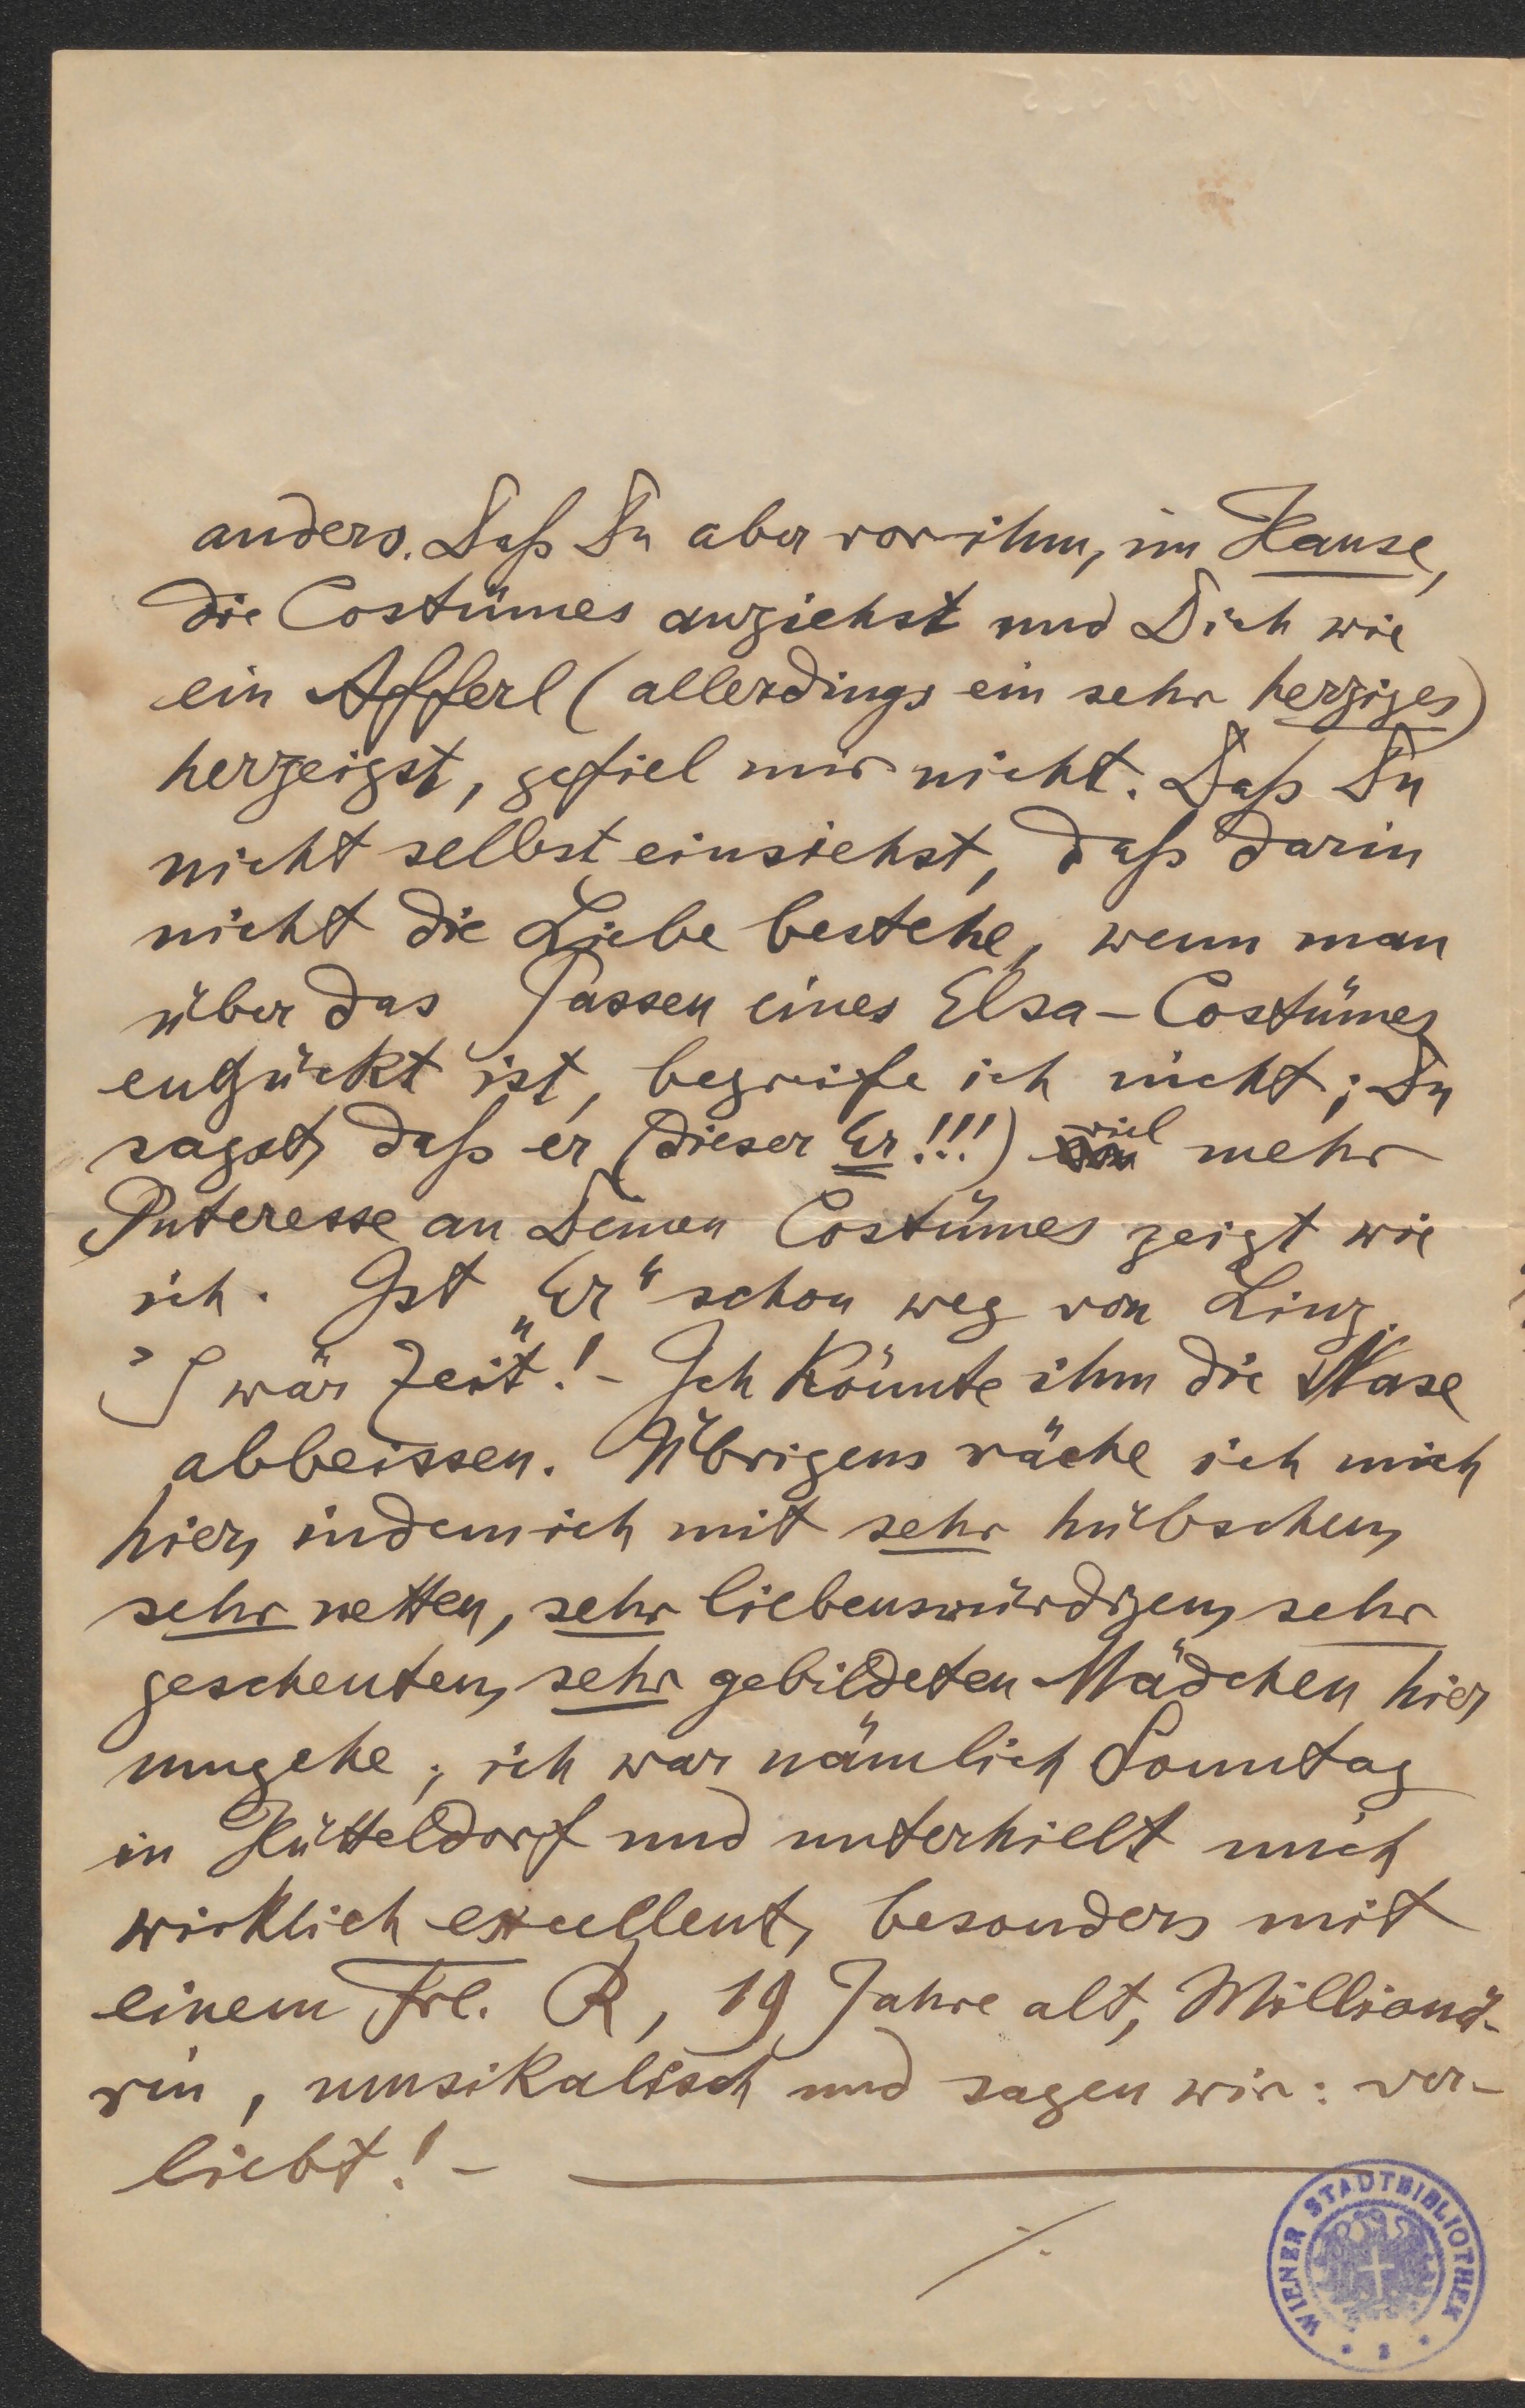 anders. Daß Du aber vor ihm, im Hause,
die Costümes anziehst und Dich wie
ein Afferl (allerdings ein sehr herziges)
herzeigst, gefiel mir nicht. Daß Du
nicht selbst einsiehst, daß darin
nicht die Liebe bestehe, wenn man
über das Passen eines Elsa-Costümes
entzückt ist, begreife ich nicht; Du
sagst, daß er (dieser Er!!!) viel mehr
Interesse an Deinen Costümes zeigt wie
ich. Ist „Er“ schon weg von Linz.
'S wär Zeit! - Ich könnte ihm die Nase
abbeissen. Übrigens räche ich mich
hier, indem ich mit sehr hübschen,
sehr netten, sehr liebenswürdigen, sehr
gescheuten, sehr gebildeten Mädchen hier
umgehe; ich war nämlich Sonntag
in Hütteldorf und unterhielt mich
wirklich excellent, besonders mit
einem Frl. R, 19 Jahre alt, Millionä-
rin, musikalisch und sagen wir: ver-
liebt! -
./.
WIENER STADTBIBLIOTHEK